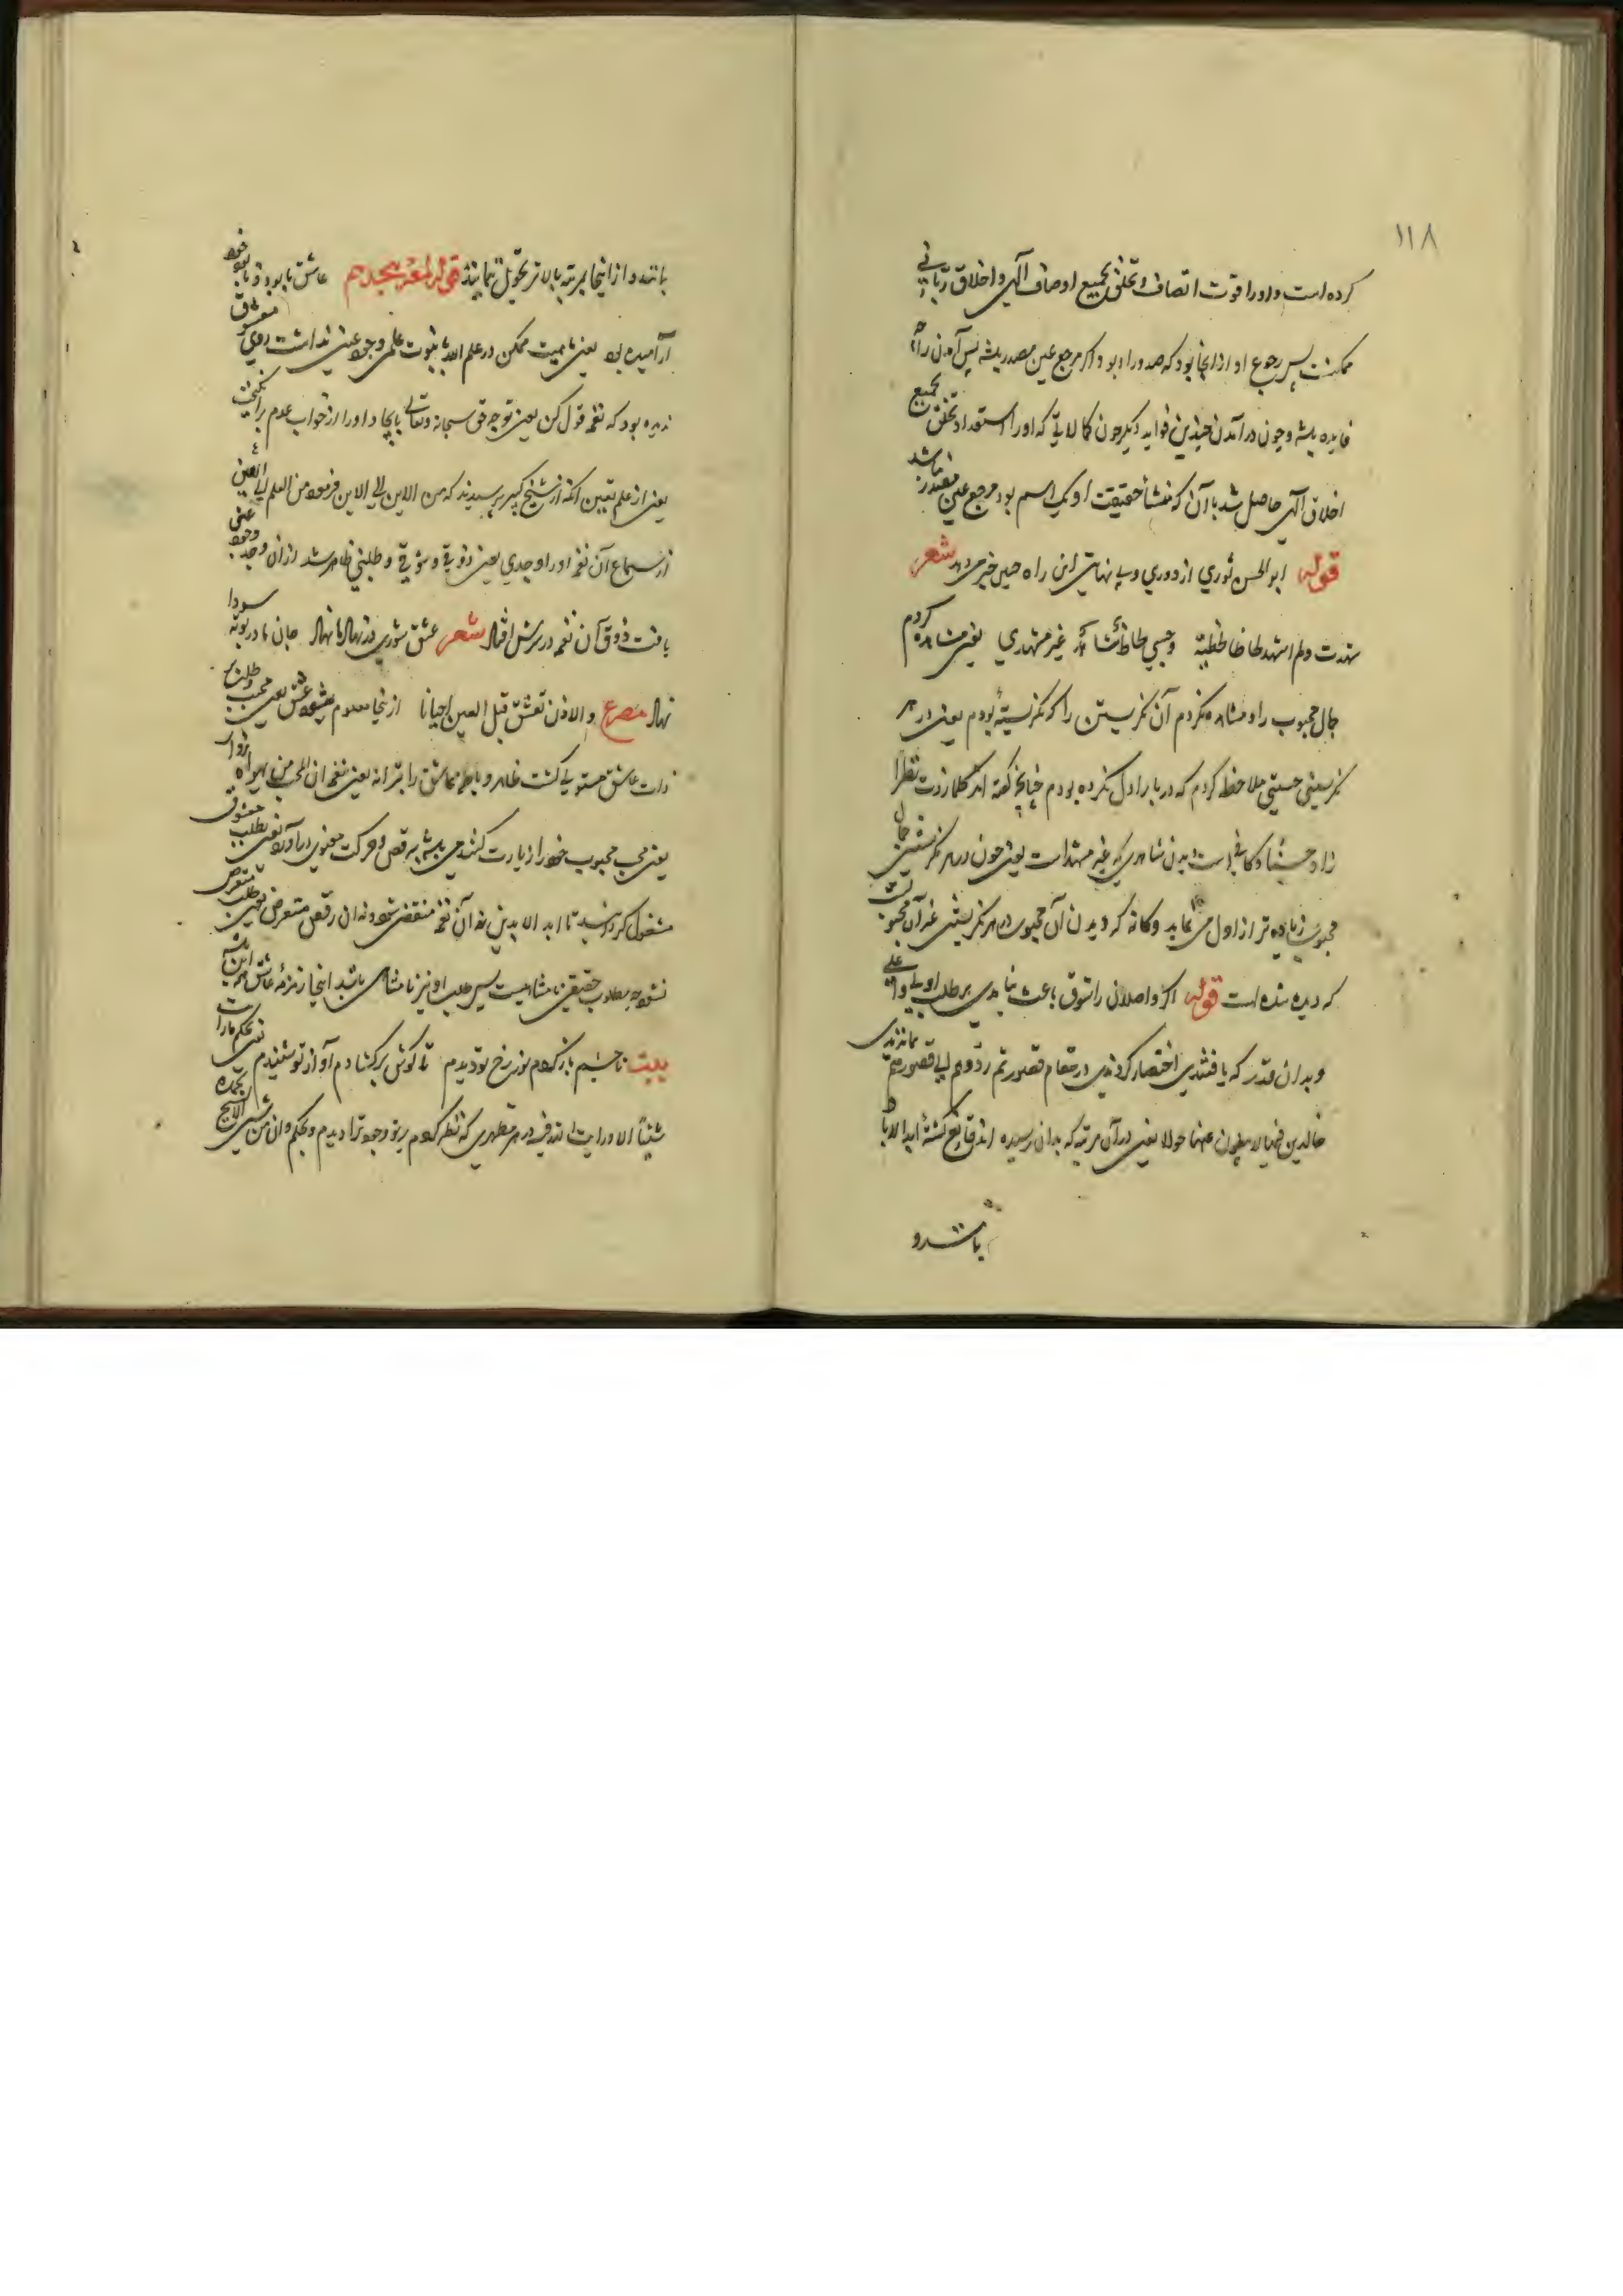 ۱۱۸
کرده است و او را قوت اتصاف و تخلق بجمیع اوصاف الهی و اخلاق ربانی
ممکنست پس رجوع او از آنجا بود که صدور او بود و اگر مرجع عین مصدر باشد پس آمدن را
فایده باشد و چون در آمدن چندین فواید دیگر چون کمالاتی که او را استعداد تخلق بجمیع
اخلاق الهی حاصل شد با آن که منشأ حقیقت او یک اسم بود مرجع عین مصدر نباشد
قوله ابو الحسن نوری از دوری و بی نهایتی این راه چنین خبر می دهد شعر
شهدت و لم اشهد لحاظا لحظته و حسبی لحاظ شاهد غیر مشهدی یعنی مشاهده کردم
جمال محبوب را و مشاهده نکردم آن نگریستن را که نگریسته بودم یعنی در هر
نگریستنی حسنی ملاحظه کردم که در بار اول نکرده بودم چنانچه گفته اند کلما زدت نظرا
زاد حسنا و کافی است دیدن شاهدی که غیر مشهد است یعنی چون در هر نگریستنی جمال
محبوب زیاده تر از اول می نماید و کانه که دیدن آن محبوب در هر نگریستنی غیر آن محبوبست
که دیده شده است قوله اگر واصلان را شوق باعث نیامدی بر طلب اولی و اعلی
و بدان قدر که یافتندی اختصار کردندی در مقام قصور تم ردوهم الی قصورهم بماندندی
خالدین فیها لا یبغون عنها حولا یعنی در آن مرتبه که بدان رسیده اند قانع گشته ابد الاباد
باشد و
باشند و از اینجا بمرتبه بالاتر تحویل ننمایند قوله لمعه هیجدهم عاشق با بود و نابود خود
آرامیده بود یعنی ماهیت ممکن در علم الله بثبوت علمی وجود عینی نداشت روی معشوق
ندیده بود که نغمه قول کن یعنی توجه حق سبحانه و تعالی بایجاد او را از خواب عدم برانگیخت
یعنی از علم بعین آنکه از شیخ کبیر پرسیدند که من الاین الی الاین فرمود من العلم الی العین
از سماع آن نغمه او را وجدی یعنی ذوقی و شوقی و طلبی ظاهر شد از آن وجد وجود عینی
یافت ذوق آن نغمه در سرش افتاد شعر عشق شوری در نهاد ما نهاد جان ما در بوته سودا
نهاد مصرع و الاذن تعشق قبل العین احیانا از اینجا معلوم میشود عشق یعنی محبت و طلب
ذات عاشق مستولی گشت ظاهر و باطن عاشق را بترانه یعنی نغمه ان المحب لمن یهواه زوار
یعنی محب محبوب خود را زیارت کننده می باشد برقص و حرکت معنوی درآورد یعنی بطلب معشوق
مشغول گردانید تا ابد الابدین نه آن نغمه منقضی شود و نه آن رقص منقرض یعنی طلب منقرض
نشود چه مطلوب حقیقی نامتناهیست پس طلب او نیز نامتناهی باشد اینجا زمزمه عاشق همه این باشد
بیت تا چشم باز کردم نور رخ تو دیدم تا گوش برگشادم آواز تو شنیدم یعنی بحکم ما رایت
شیئا الا و رایت الله فیه در هر مظهری که نظر کردم پرتو وجود ترا دیدم و بحکم و ان من شیئ الا یسبح بحمده